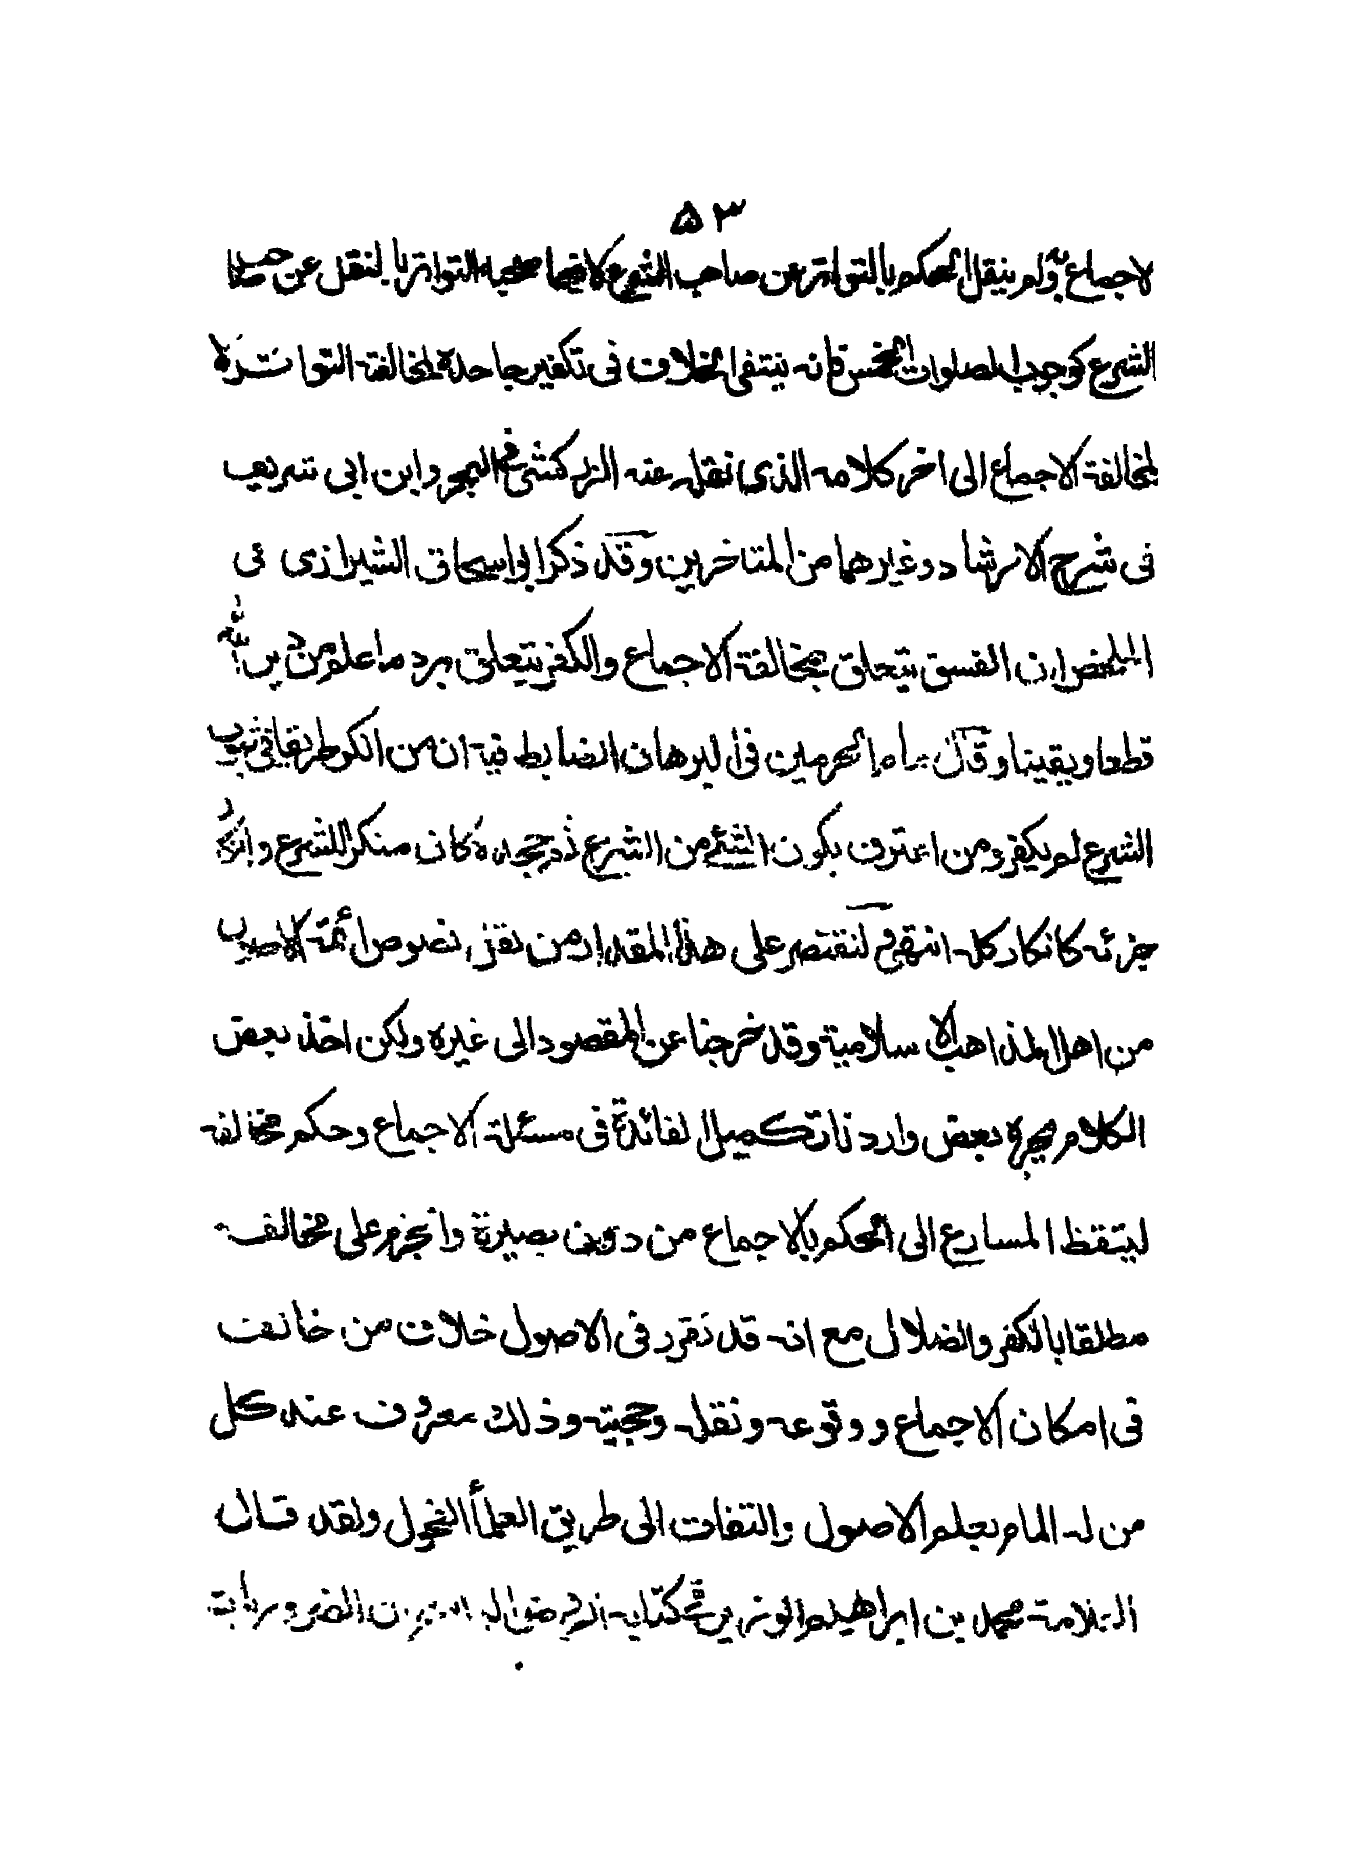 ۵۳
لاجماع ولم ينقل الحكم بالتواتر عن صاحب الشرع كا التواتر بالنقل عن صاحب
الشرع كوجوب الصلوات الخمس فانه ينتفى الخلاف فى تكفير جاحده لمخالفته التواتر لا
لمخالفة الاجماع الى اخر كلامه الذى نقله عنه الزركشى فى البحر وابن ابى شريف
فى شرح الارشاد وغيرهما من المتاخرين وقد ذكر ابو اسحاق الشيرازى فى
الملخص ان الفسق يتعلق بمخالفة الاجماع والكفر يتعلق برد ما علم من دين الله
قطعا ويقينا وقال امام الحرمين فى البرهان الضابط فيه ان من انكر طريقا فى ثبوت
الشرع لم يكفر ومن اعترف بكون الشئ من الشرع ثم جحده كان منكرا للشرع وانكار
جزئه كانكار كله انتهى ولنقتصر على هذا المقدار من نقل نصوص أئمة الاصول
من اهل المذاهب الاسلامية وقد خرجنا عن المقصود الى غيره ولكن اخذ بعض
الكلام بحجزة بعض واردنا تكميل الفائدة فى مسئلة الاجماع وحكم مخالفه
ليتقظ المسارع الى الحكم بالاجماع من دون بصيرة والجزم على مخالفه
مطلقا بالكفر والضلال مع انه قد تقرر فى الاصول خلاف من خالف
فى امكان الاجماع ووقوعه ونقله وحجيته وذلك معروف عند كل
من له المام بعلم الاصول والتفات الى طريق العلمأ الفحول ولقد قال
العلامة محمد بن ابراهيم الوزير فى كتابه